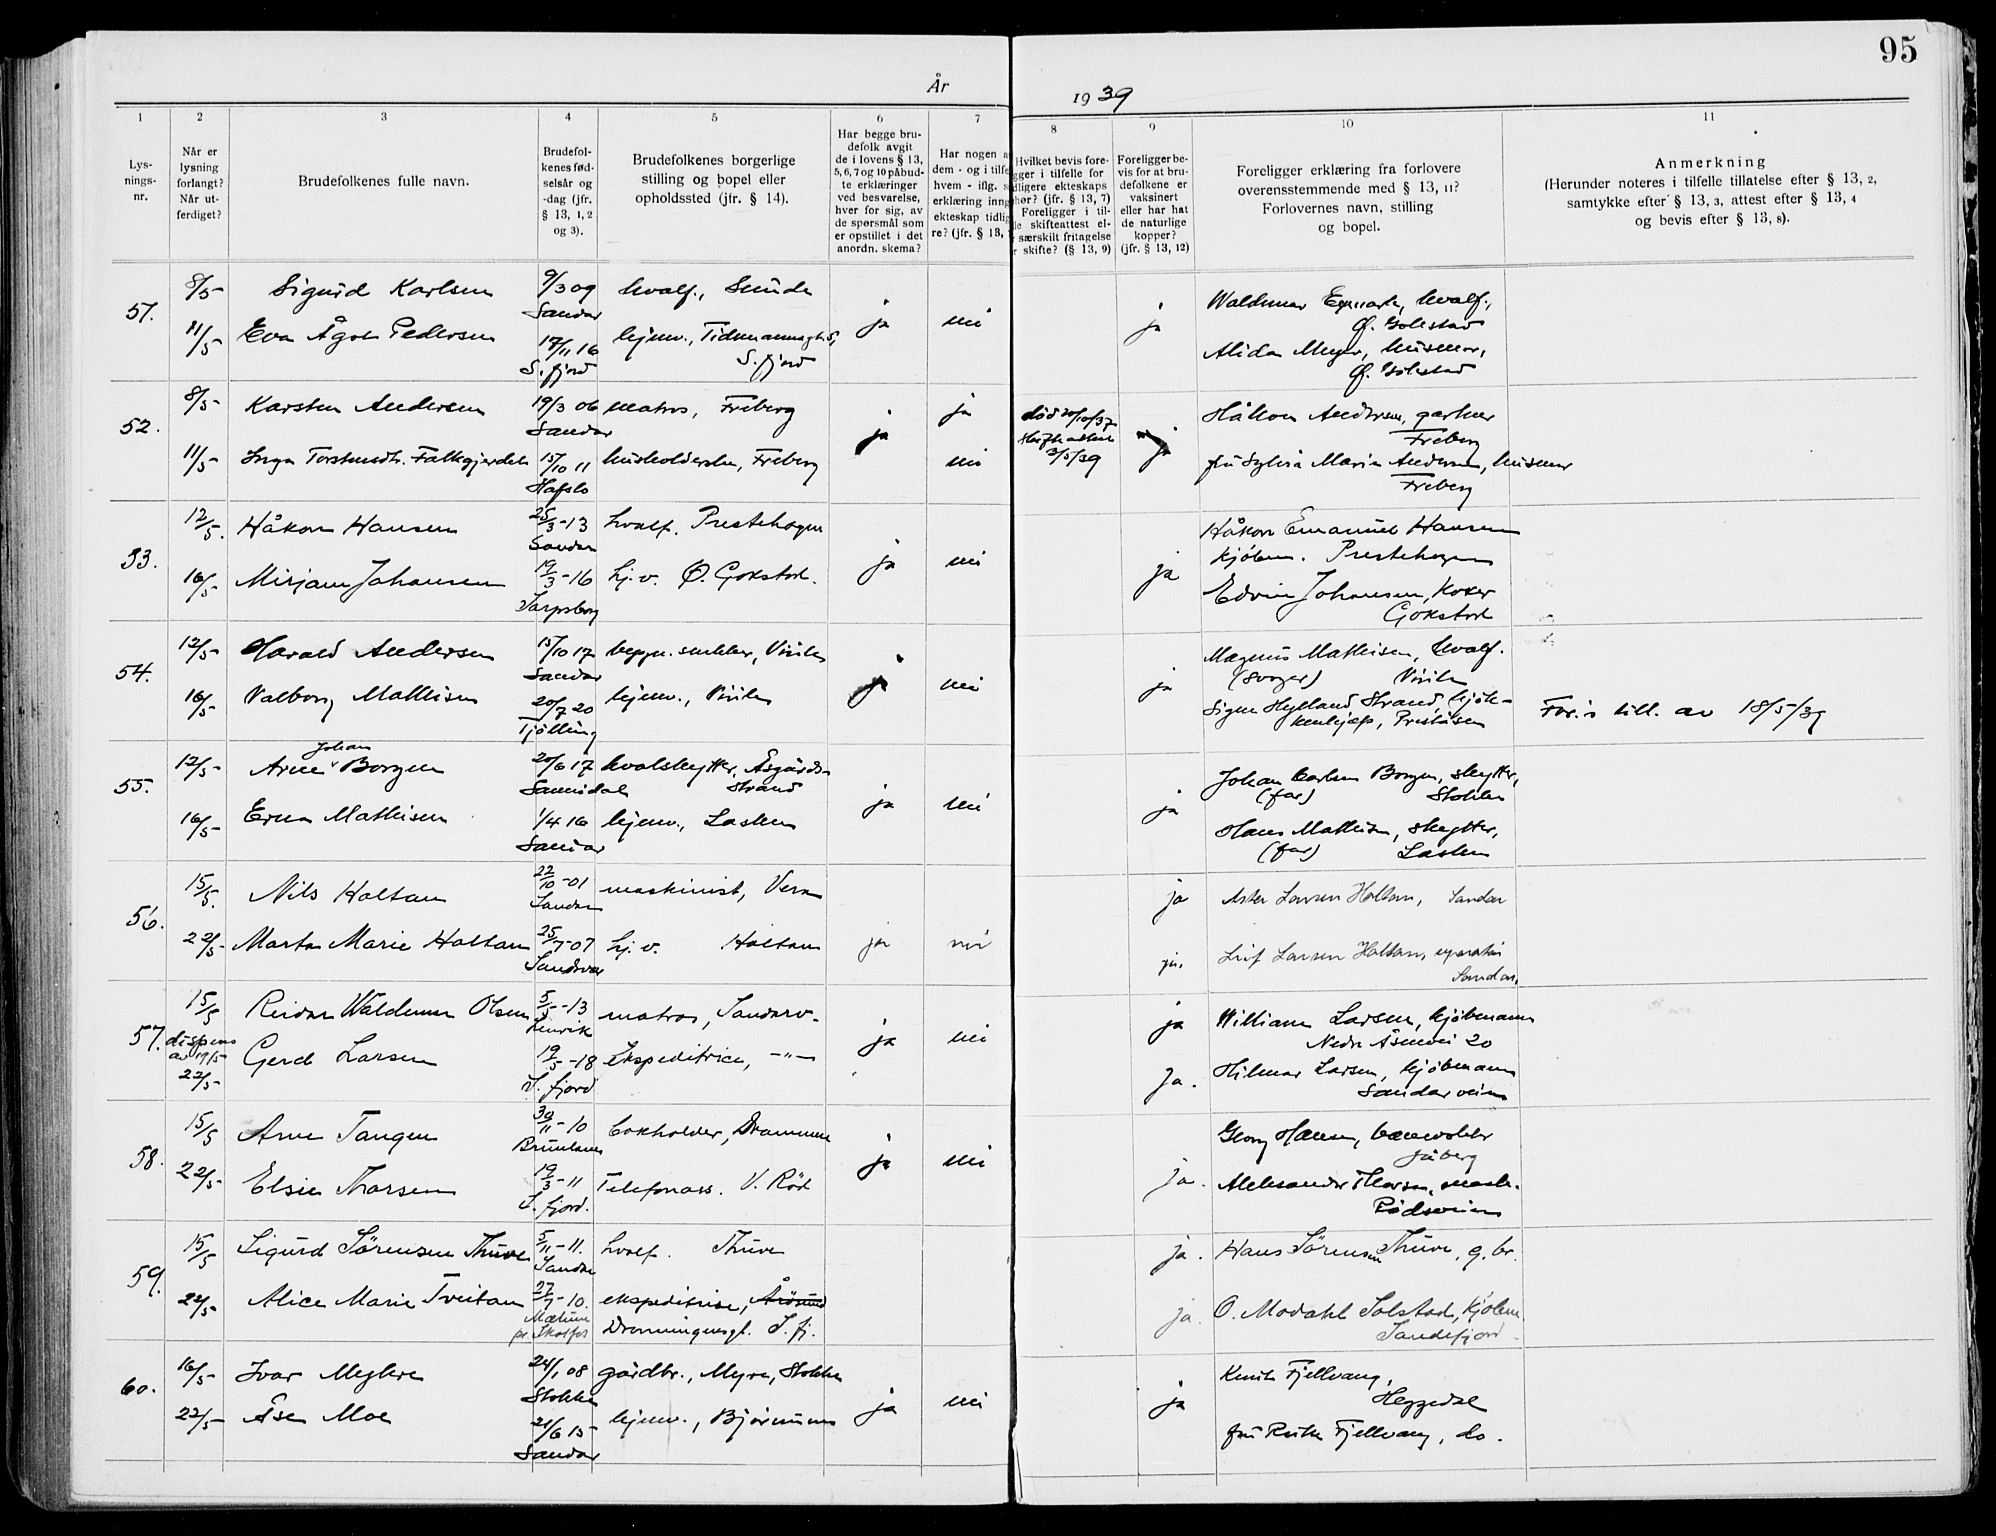 95
År 1939
1 2 3 4 5 6 7 8 9 10 11
Lys-
nings-
nr.
Når er
lysning
forlangt?
Når ut-
ferdiget?
Brudefolkenes fulle navn.
Brudefol-
kenes fød-
selsår og
-dag (jfr.
§ 13, 1, 2
og 3).
Brudefolkenes borgerlige
stilling og bopel eller
opholdssted (jfr. § 14).
Har begge bru-
defolk avgit
de i lovens § 13,
5, 6, 7 og 10 påbud-
te erklæringer
ved besvarelse,
hver for sig, av
de spørsmål som
er opstillet i det
anordn. skema?
Har nogen a
dem - og i tilfe
hvem - iflg. s
erklæring inng
ekteskap tidlig
re? (jfr. § 13,
Hvilket bevis fore-
gger i tilfelle for
dligere ekteskaps
phør? (jfr. § 13, 7)
Foreligger i til-
le skifteattest el-
r særskilt fritagelse
r skifte? (§ 13, 9)
Foreligger be-
vis for at bru-
defolkene er
vaksinert
eller har hat
de naturlige
kopper?
(jfr. § 13, 12)
Foreligger erklæring fra forlovere
overensstemmende med § 13, 11?
Forlovernes navn, stilling
og bopel.
Anmerkning
(Herunder noteres i tilfelle tillatelse efter § 13, 2,
samtykke efter § 13, 3, attest efter § 13, 4
og bevis efter § 13, 8).
51. 8/5 Sigurd Karlsen 9/3 09 hvalf., Sunde
Sandar
11/5 Eva Ågot Pedersen 17/11 16 hjemv.,
S. fjord S. fjord
ja nei ja
Waldemar hvalf.,
Ø. Gokstad
Alida Meyer, husmor,
Ø. Gokstad
52. 8/5 Karsten Andersen 19/3 06 matros, Freberg
Sandar
11/5 Inga Torstensdtr. Falkgjerdet 15/10 11 husholderske, Freberg
Hafslo
ja ja nei
død 20/10/37
3/5/39
ja
Håkon Andersen, gartner
Freberg
fru Sylvia Marie Andersen, husmor
Freberg
53. 12/5. Håkon Hansen 25/3-13 hvalf. Prestehagen
Sandar
16/5 Mirjam Johansen 19/3-16 hj.v. Ø. Gokstad.
Sarpsborg
ja nei ja
Håkon Emanuel Hansen
kjøbm. Prestehagen
Edvin Johansen, Koker
Gokstad
54. 12/5 Harald Andersen 15/10 17 byggn. snekker, Virik
Sandar
16/5 Valborg Mathisen 20/7 20 hjemv., Virik
Tjølling
ja nei ja
Magnus Mathisen, hvalf.
(svoger) Virik
Signe Hylland Strand, kjøk-
kenhjelp, Preståsen
For.s till. av 18/5/39
55. 12/5 Arne Johan Borgen 20/6 17 hvalskytter, Åsgårds-
Sannidal strand
16/5 Erna Mathisen 1/4 16 hjemv., Lasken
Sandar
ja nei ja
Johan Carlsen Borgen, skytter,
(far) Stokke
Hans Mathisen, skytter,
(far) Lasken
56. 15/5. Nils Haltan 22/10-01 maskinist, Vera
Sandar
22/5 Marta Marie Haltan 25/7-07 hj.v. Haltan
Sandsvær
ja nei
ja Aster Larsen Haltan, Sandar
ja. Leif Larsen Haltan, reparatør
Sandar.
57. 15/5 Reidar Waldemar Olsen 5/5-13 matros, Sandarv.
dispens
av 19/5
22/5
Gerd Larsen 19/5-18 Ekspeditrice, -"-
S. fjord
ja nei
ja William Larsen, kjøbmann
Nedre Åsenvei 20
ja. Hilmar Larsen, kjøbmann
Sandarveien
58. 15/5 Arne Tangen 30/11-10 bokholder, Drammen
Brunlanes
22/5 Elsie Thorsen 19/3-11 Telefonass. V. Rød
S. fjord.
ja nei ja.
Georg Hansen, banevokter
Jåberg
Aleksander Thorsen, mask.
Rødsveien
59. 15/5 Sigurd Sörensen Thuve 5/11-11. hvalf. Thuve
Sandar
22/5 Alice Marie Tveitan 27/7-10. ekspeditrise, Årøsund
Mælum
pr. Skotfos Dronningensgt. S. fj.
ja. Hans Sörensen Thuve, g.br.
ja. O. Modahl Solstad, kjøbm.
Sandefjord
60. 16/5 Ivar Meglere 24/1 08 gårdbr., Myre, Stokke
Stokke
22/5 Åse Moe 21/6 15 hjemv., Bjørnum
Sandar
ja nei ja
Knut Fjellvang,
Heggedal
fru Ruth Fjellvang, do.